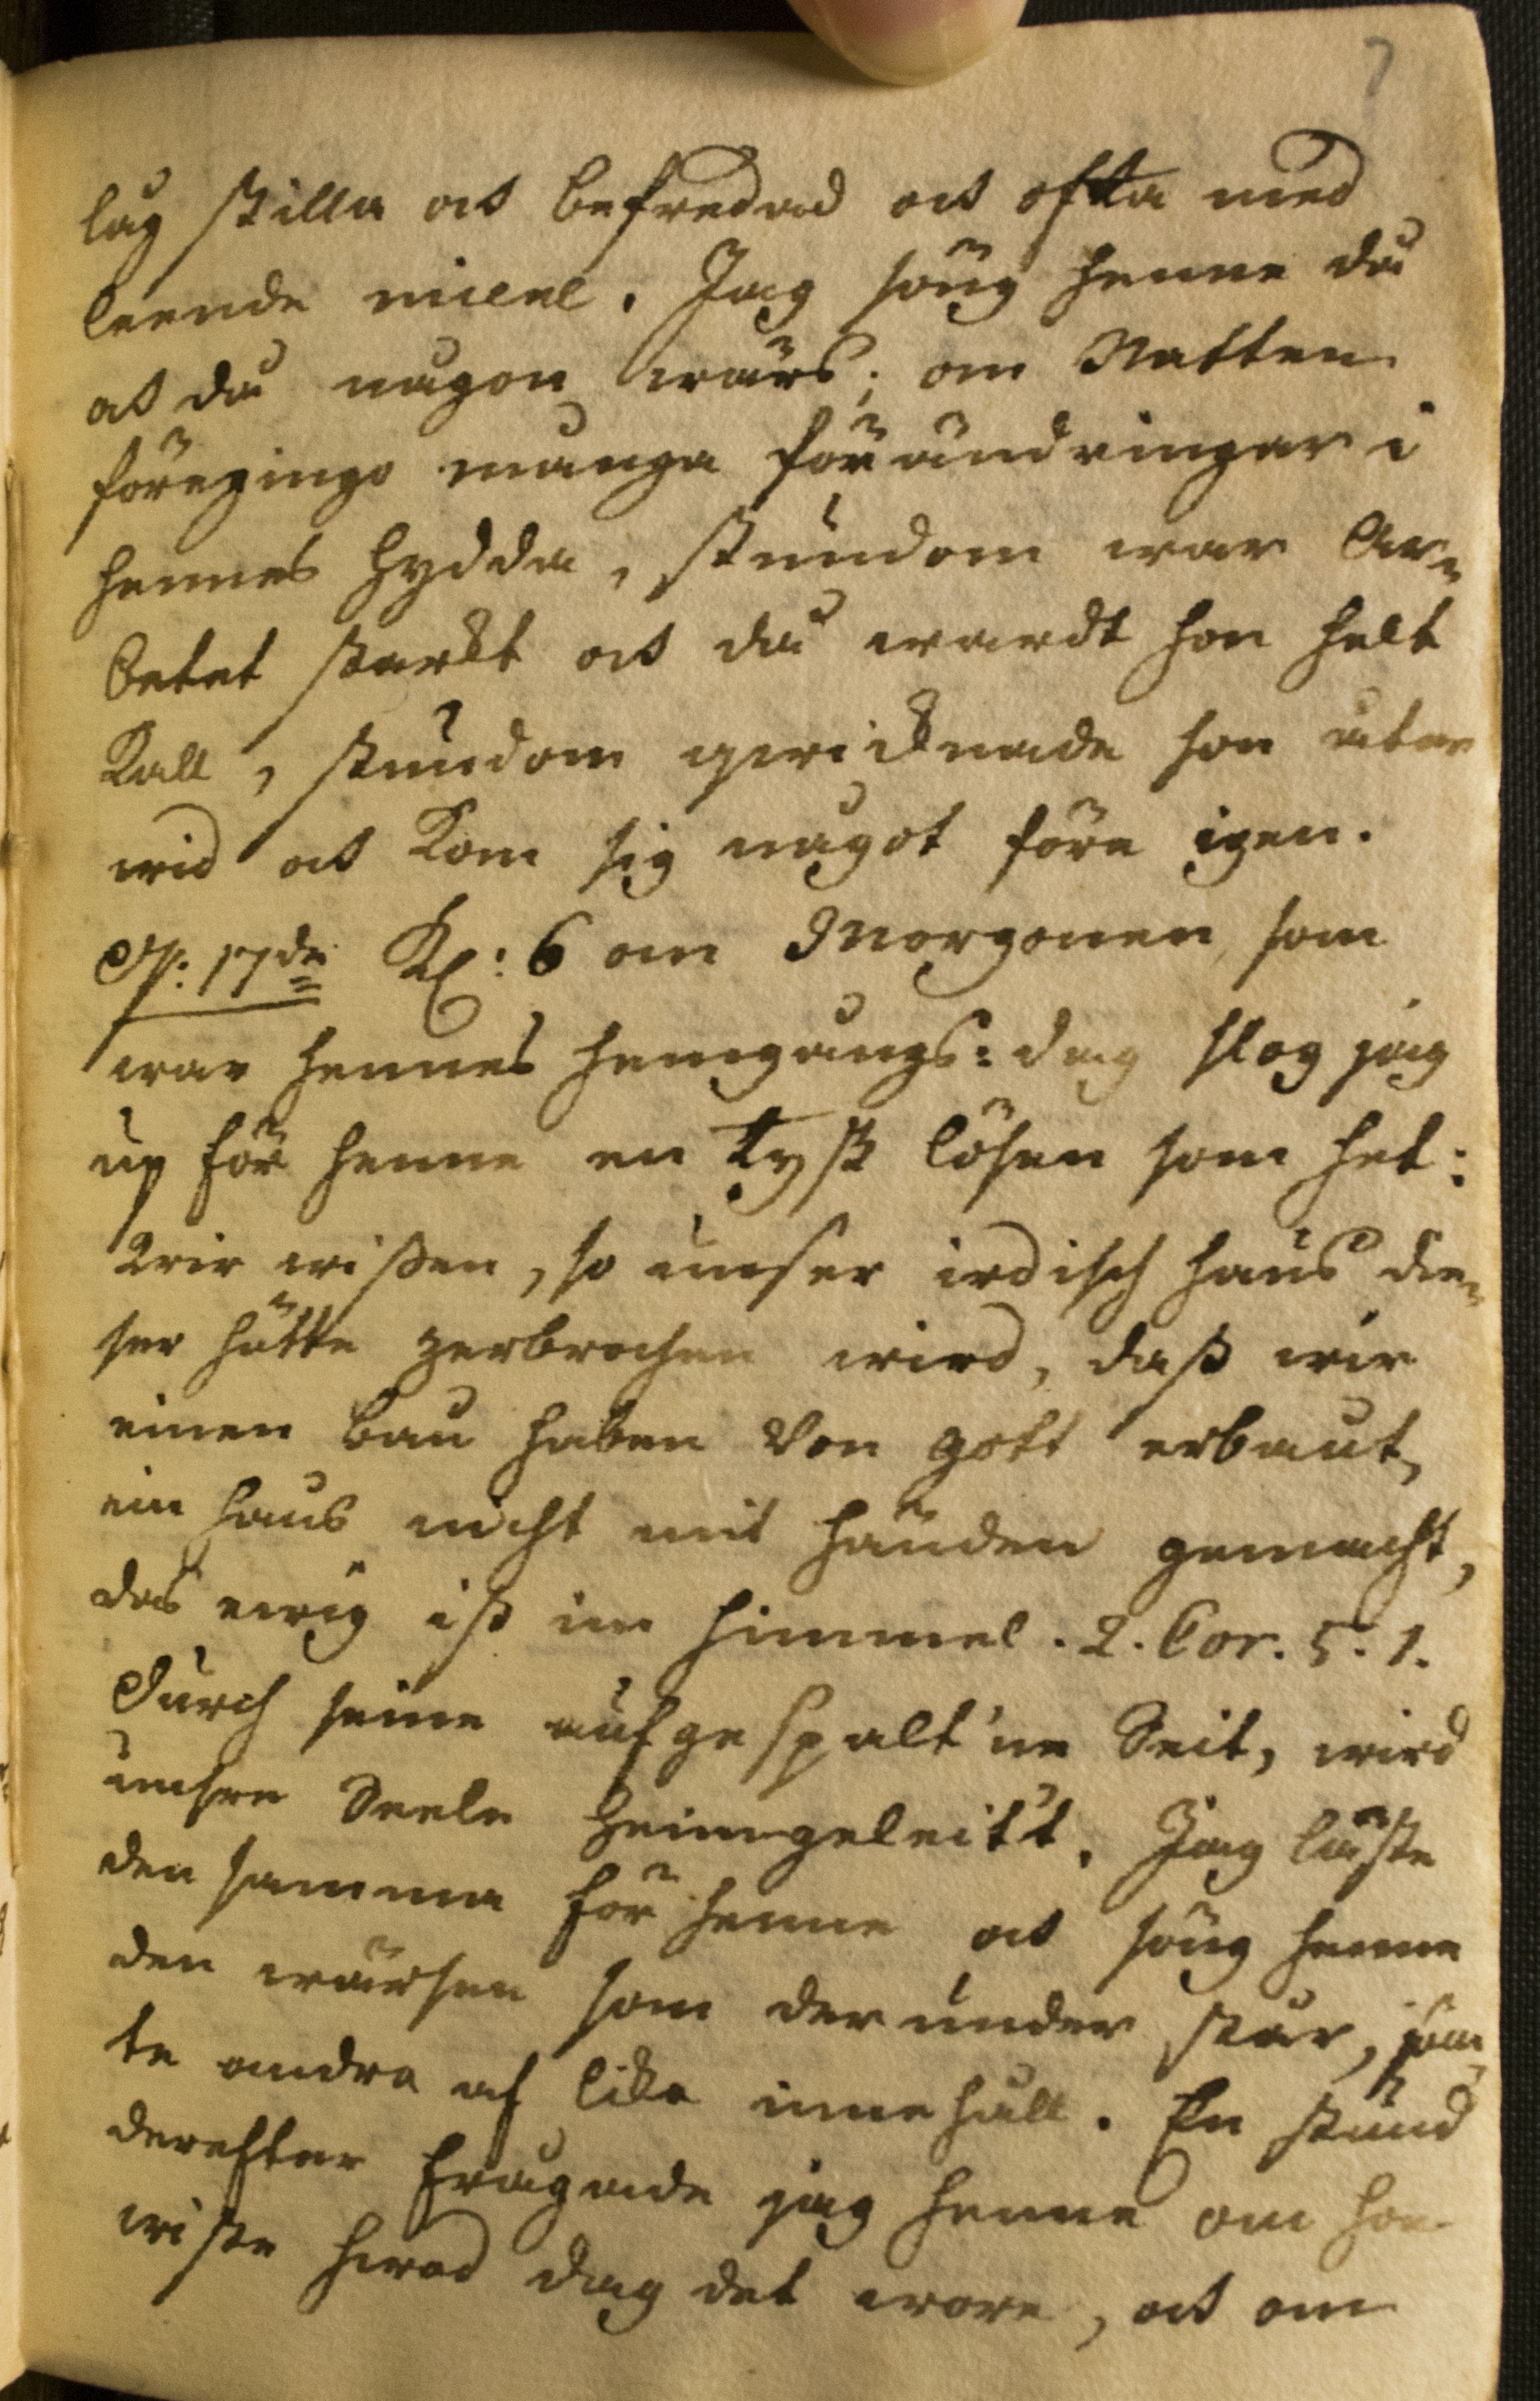 7
låg stilla och befredad och ofta med
leende miene. Jag söng henne då
och då någon wärs; om Natten
föregingo många förändringar i
hennes hydda, stundom war Ar=
betet starkt och då wardt hon helt
kall, stundom qwicknade hon åter
wid och kom sig något före igen.
D: 17de Kl: 6 om Morgonen, som
war hennes hemgångs: dag slog jag
up för henne en tysk lösen som het:
Wir wißen, so unser irdisch haus die=
ser hütte zerbrochen wird, daß wir
einen bau haben von gott erbaut,
ein haus nicht mit händen gemacht,
das ewig ist im himmel. 2. Cor. 5. 1.
Durch seine aufgespalt'ne Seit, wird
unsre Seele heimgeleit't. Jag läste
den samma för henne och söng henne
den wärsen som derunder står, jäm=
te andra af lika innehåll. En stund
derefter frågade jag henne om hon
wiste hwad dag det wore, och om